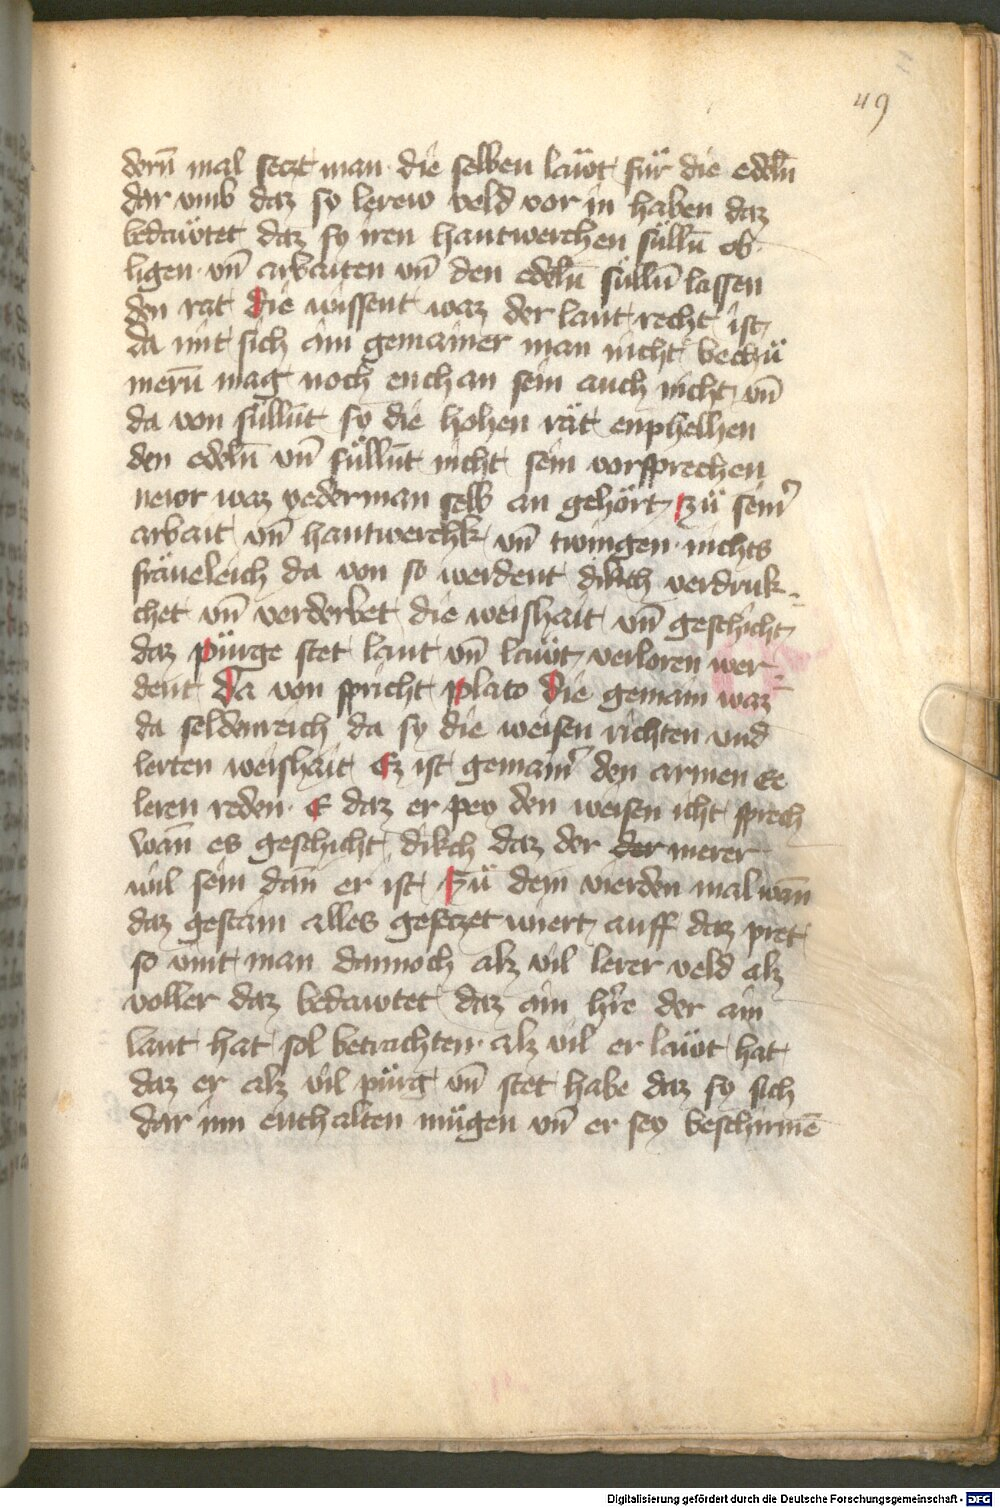 49
dern̄ mal seczt man die selben läwt für die edeln̄
dar vmb daz sy lerew veld vor in haben daz
bedäwtet daz sy iren hantwerchen sülln̄ ob
ligen vn̄ arbaiten vn̄ den edeln̄ sülln̄ lassen
den rat die wissent waz der lant recht ist
da mit sich ain gemainer man nicht bechü
mern̄ mag noch enchan sein auch nicht vn̄
da von süllnt̄ sy die hohen rät enphelhen
den edeln̄ vn̄ süllnt̄ nicht sein vorsprechen
newr waz yederman selb an gehört zü seinr̄
arbait vn̄ hantwerchk vn̄ twingen nichts
fräueleich da von so werdent dikch verdruk
chet vn̄ verderbet die weishait vn̄ geschicht
daz pürge stet lant vn̄ läwt verloren wer
dent Da von spricht plato die gemain waz
da seldenreich da sy die weisen richten vnd
lerten weishait Ez ist gemainr̄ den armen ee
leren reden E daz er pey den weisen icht sprech
wan̄ es geschicht dikch daz der der merer
wil sein dan̄ er ist Zü dem vierden mal wan̄
daz gestain alles geseczet wiert auff daz pret
so vint man dannoch alz vil lerer veld alz
voller daz bedawtet daz ain hr̄re der ain
lant hat sol betrachten alz vil er läwt hat
daz er alz vil pürg vn̄ stet habe daz sy sich
dar inn enthalten mügen vn̄ er sey beschirmē
Digitalisierung gefördert durch die Deutsche Forschungsgemeinschaft - DFG